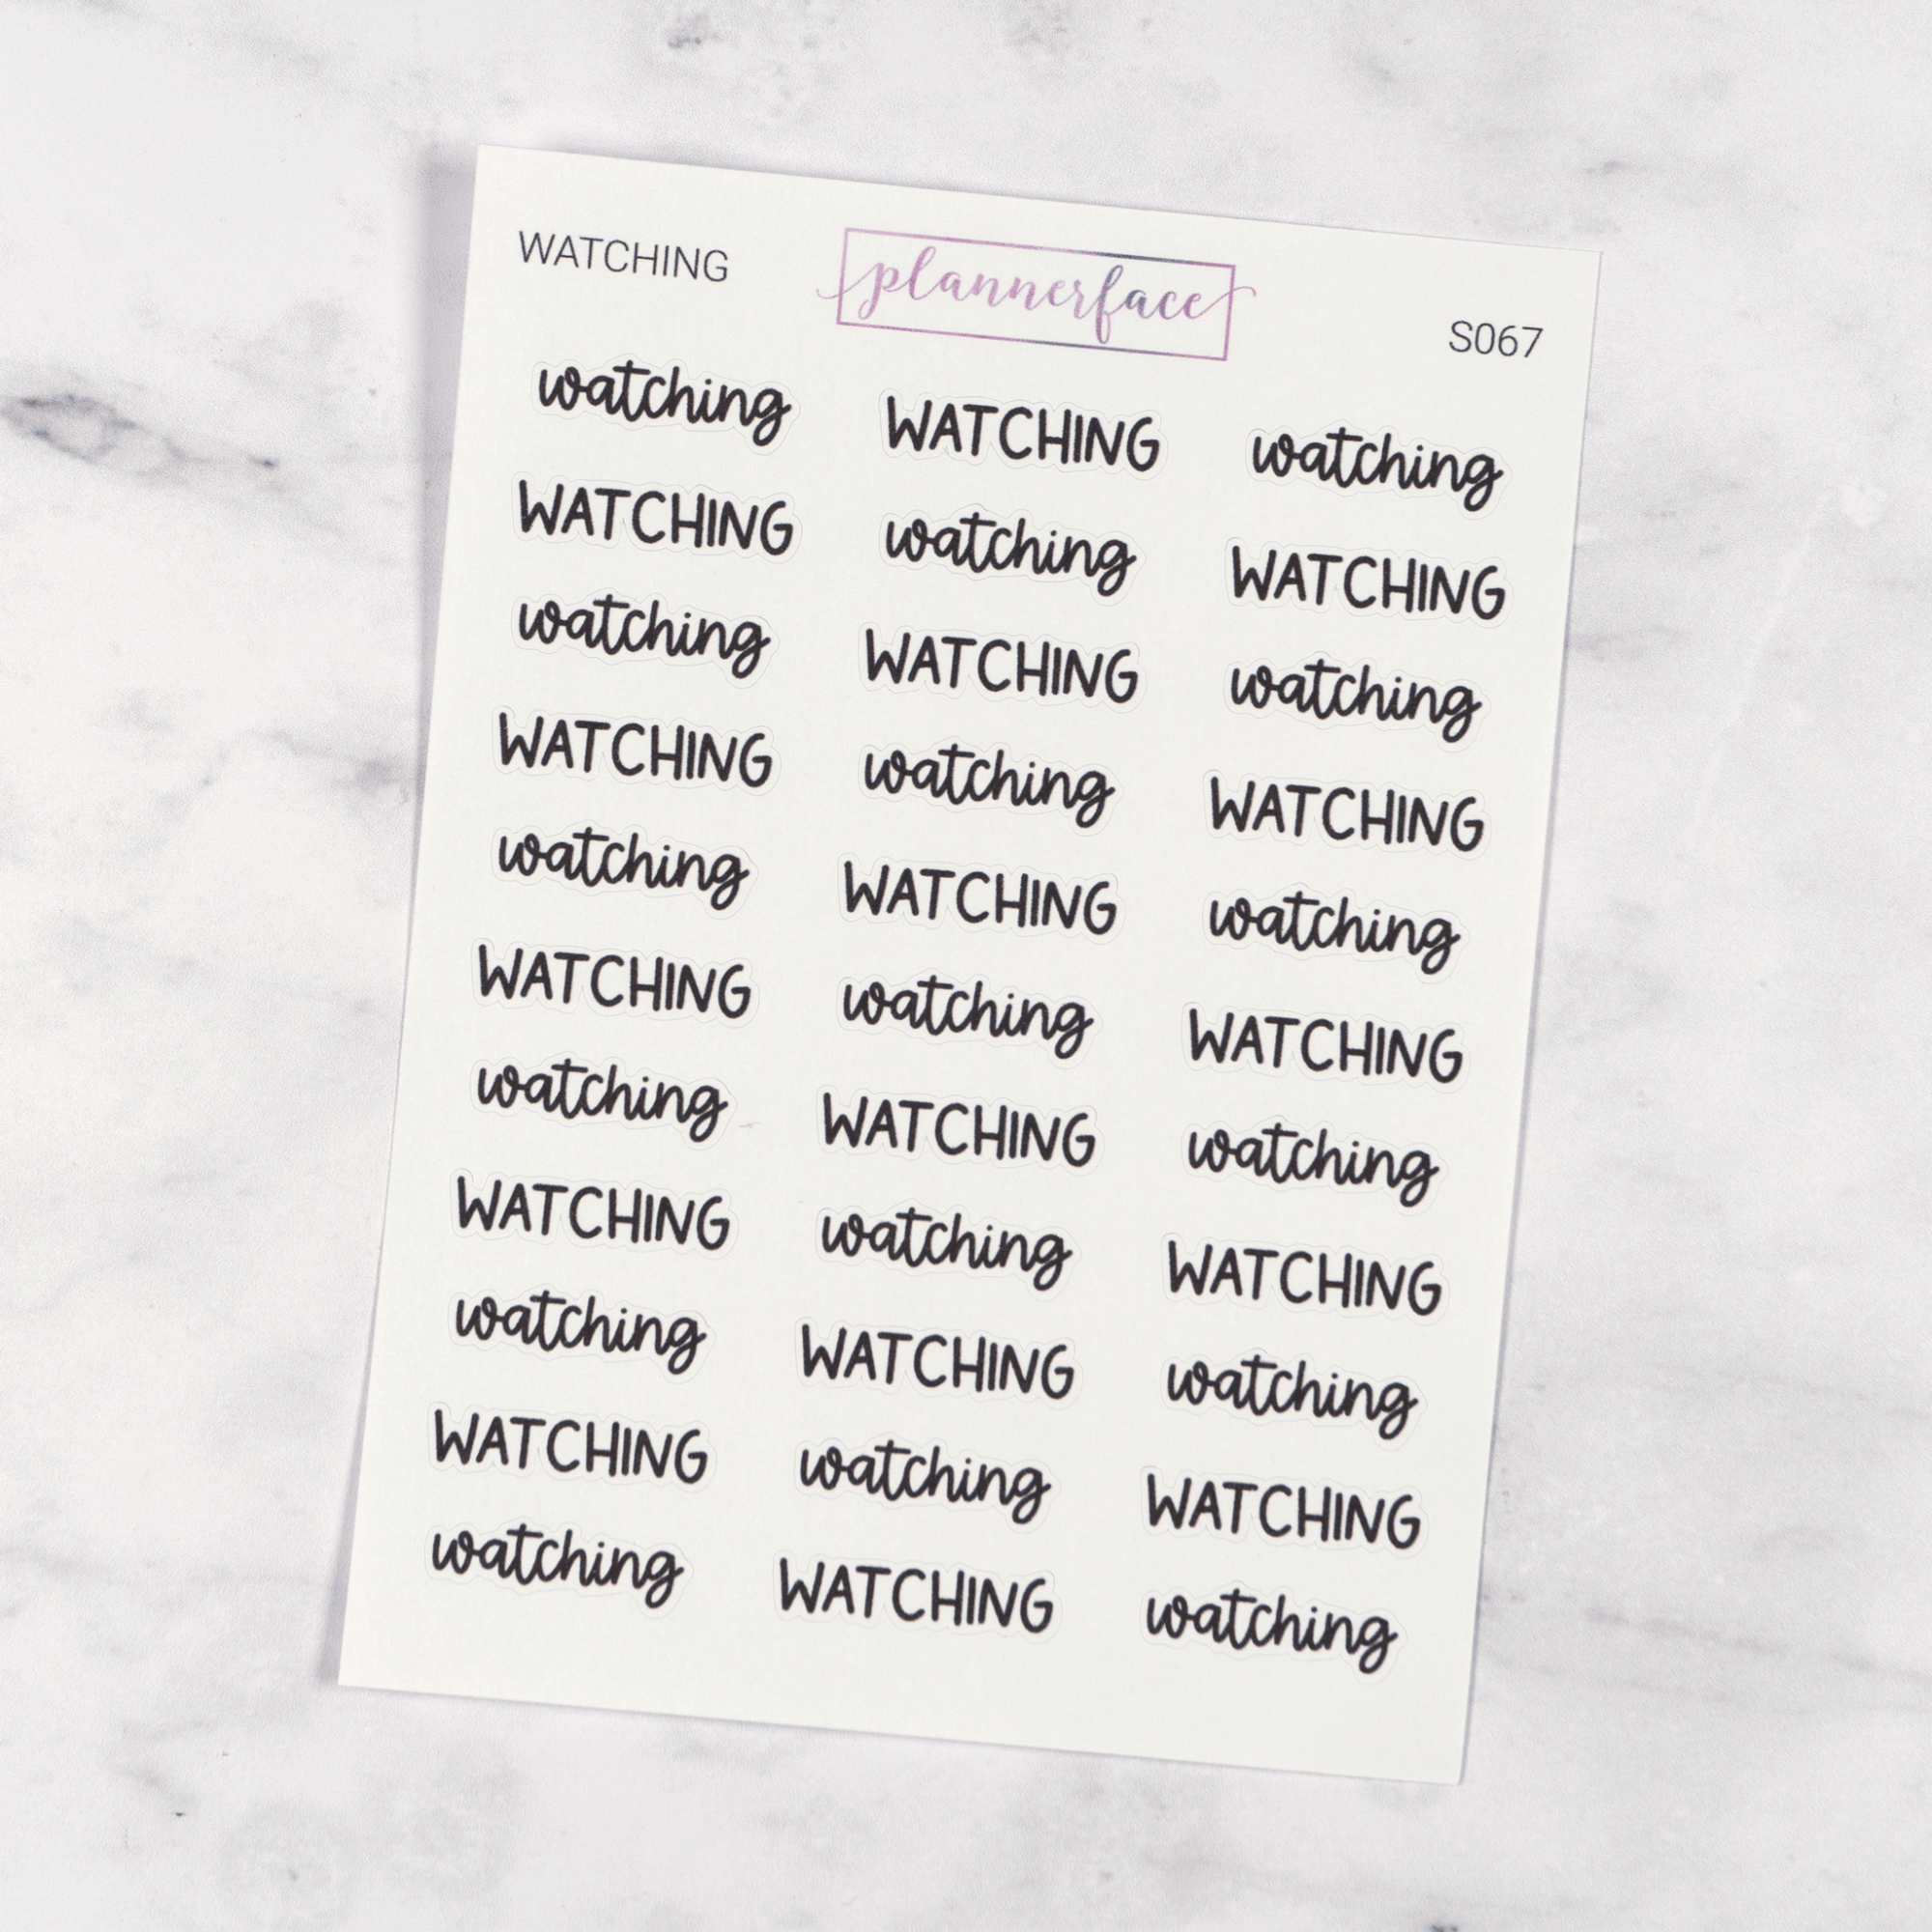 WATCHING plannerface S067
watching WATCHING watching
WATCHING watching WATCHING
watching WATCHING watching
WATCHING watching WATCHING
watching WATCHING watching
WATCHING watching WATCHING
watching WATCHING watching
WATCHING watching WATCHING
watching WATCHING watching
WATCHING watching WATCHING
watching WATCHING watching